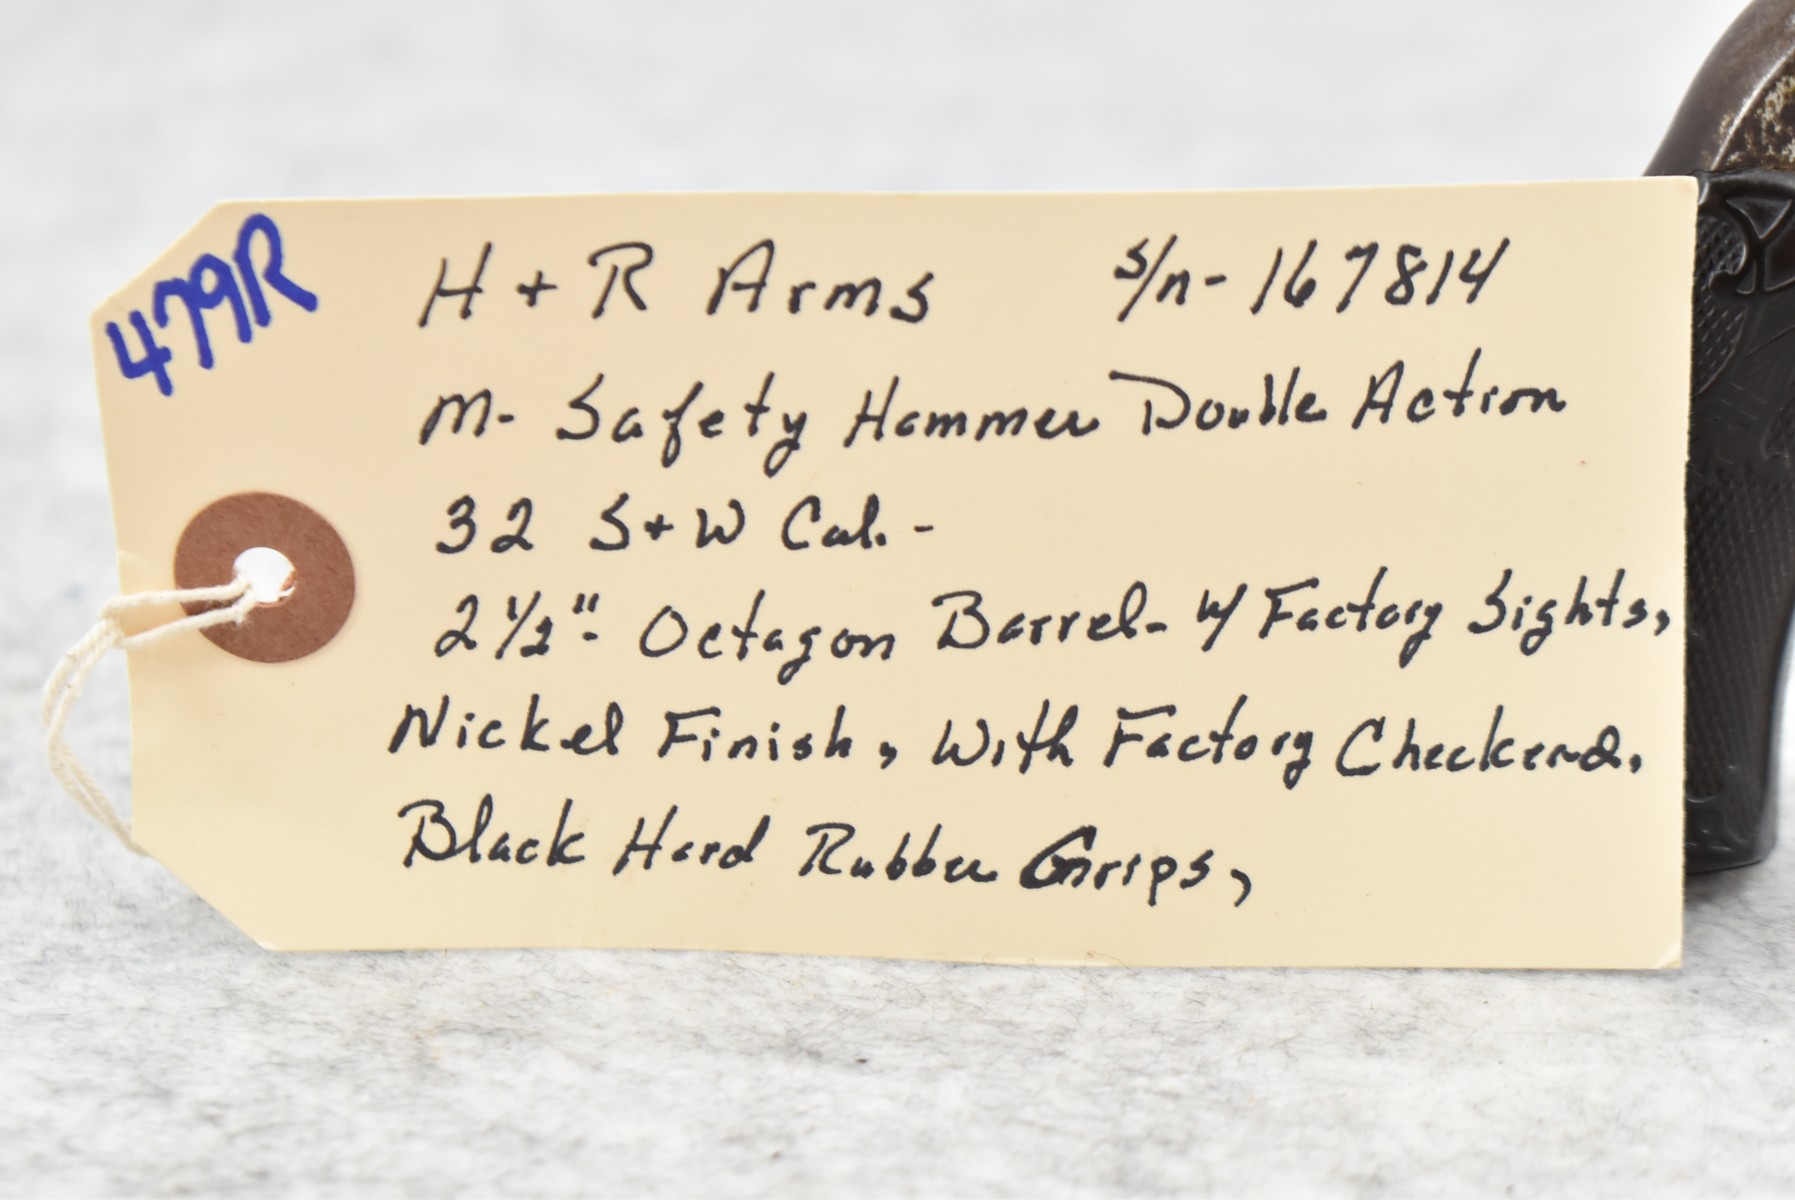 479R
H + R Arms s/n- 167814
M- Safety Hammer Double Action
32 S+W Cal. -
2 1/2"- Octagon Barrel- w/ Factory Sights,
Nickel Finish, With Factory Checkered,
Black Hard Rubber Grips,